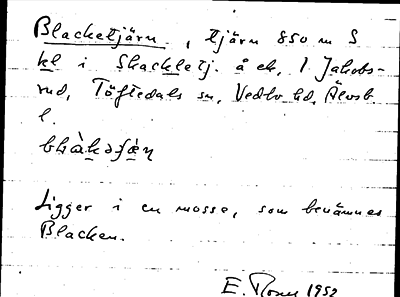 Blacketjärn, tjärn 850 m S
kl i Skackletj. å ek, 1 Jakobs-
rud, Töftedals sn, Vedbo hd, Älvsb
l.
Ligger i en mosse, som benämnes
Blacken.
E. 1952